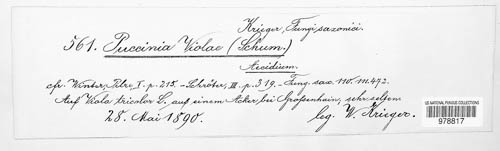 Krieger, Fungi saxonici.
561. Puccinia Violae (Schum.)
Aecidium.
cfr. Winter, Pilze, I. p. 215. - Schröter, III. p. 319. - Fung. sax. no. m. 472.
Auf Viola tricolor L. auf einem Acker bei Großenhain, sehr selten
28. Mai 1890. leg. W. Krieger.
US NATIONAL FUNGUS COLLECTIONS
978817